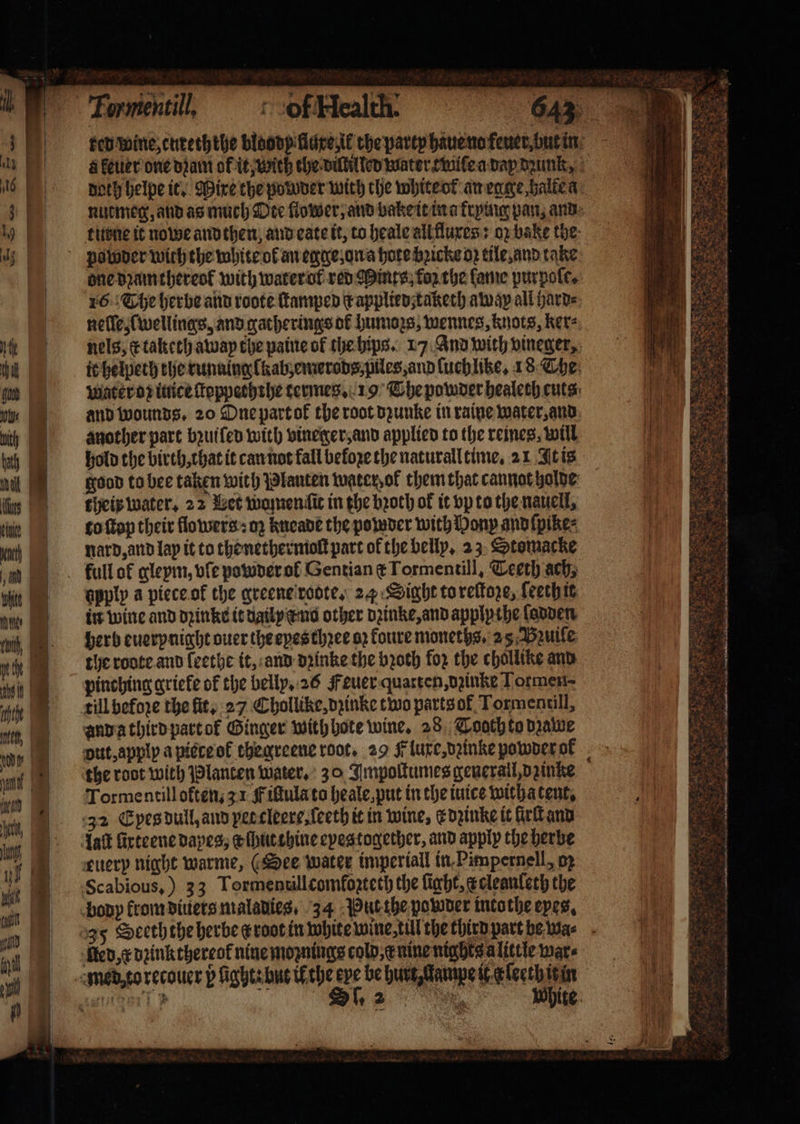 Tormentill, of Health. 643
red wine, cureth the bloody fluxe, if the party haue no feuer, but in
a feuer one dram of it, with the distilled water twise a day drunk,
doth helpe it. Mixe the powder with the white of an egge, halfe a
nutmeg, and as much Ote flower, and bake it in a frying pan, and
turne it nowe and then, and eate it, to heale all fluxes: or bake the
powder with the white of an egge, on a hote bricke or tile, and take
one dram thereof with water of red Mints, for the same purpose.
16 The herbe and roote stamped & applied, taketh away all hard-
nesse, swellings, and gatherings of humors, wennes, knots, ker-
nels, & taketh away the paine of the hips. 17 And with vineger,
it helpeth the running skab, emerods, piles, and such like. 18 The
water or iuice stoppeth the termes. 19 The powder healeth cuts
and wounds. 20 One part of the root drunke in raine water, and
another part bruised with vineger, and applied to the reines, will
hold the birth, that it can not fall before the naturall time. 21 It is
good to bee taken with Planten water, of them that cannot holde
their water. 22 Let women sit in the broth of it vp to the nauell,
to stop their flowers: or kneade the powder with Hony and spike-
nard, and lay it to the nethermost part of the belly. 23 Stomacke
full of gleym, vse powder of Gentian & Tormentill. Teeth ach,
apply a piece of the greene roote. 24 Sight to restore, seeth it
in wine and drinke it daily and other drinke, and apply the sodden
herb euery night ouer the eyes three or foure moneths. 25 Bruise
the roote and seethe it, and drinke the broth for the chollike and
pinching griefe of the belly. 26 Feuer quarten, drinke Tormen-
till before the fit. 27 Chollike, drinke two parts of Tormentill,
and a third part of Ginger with hote wine. 28 Tooth to drawe
out, apply a piece of the greene root. 29 Fluxe, drinke powder of
the root with Planten water. 30 Impostumes generall, drinke
Tormentill often. 31 Fistula to heale, put in the iuice with a tent.
32 Eyes dull, and yet cleere, seeth it in wine, & drinke it first and
last sixteene dayes, & shut thine eyes together, and apply the herbe
euery night warme, (See water imperiall in Pimpernell, or
Scabious.) 33 Tormentill comforteth the sight, & cleanseth the
body from diuers maladies. 34 Put the powder into the eyes.
35 Seeth the herbe & root in white wine, till the third part be wa-
sted, & drink thereof nine mornings cold, & nine nights a little war-
med, to recouer ẏ sight: but if the eye be hurt, stampe it & seeth it in
Sſ. 2 white